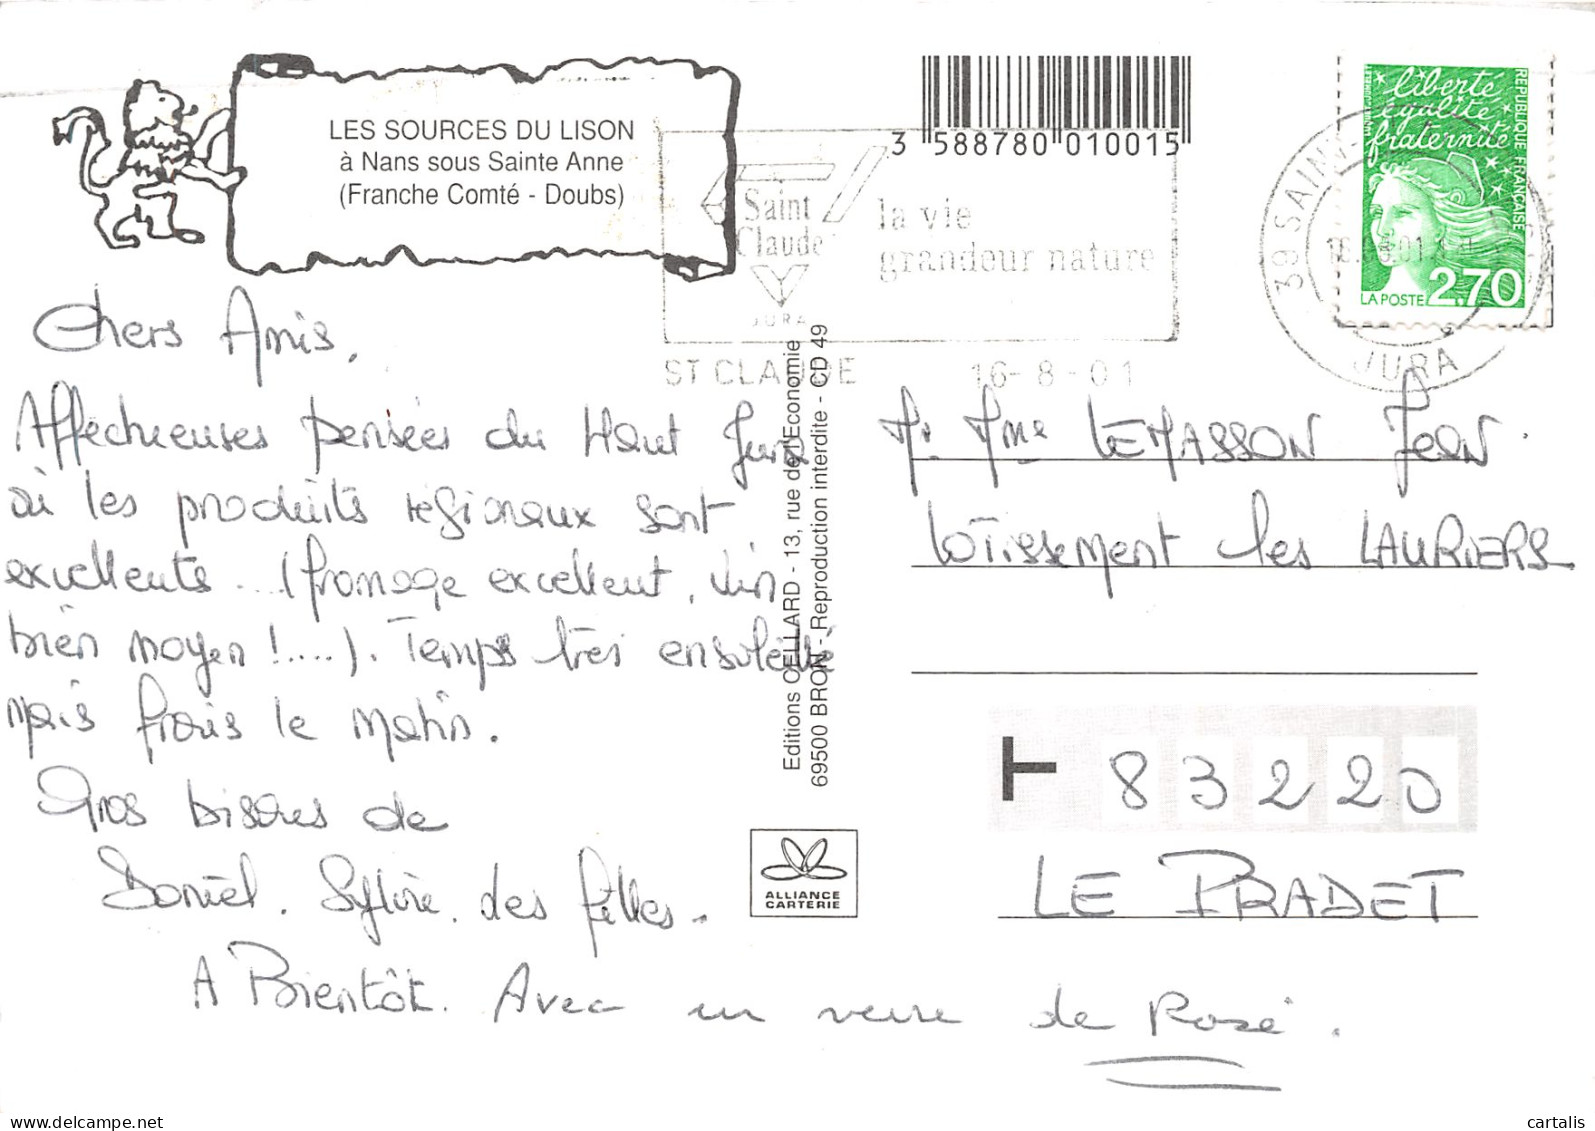 LES SOURCES DU LISON
à Nans sous Sainte Anne
(Franche Comté - Doubs)
3 588780 010015
liberté
égalité
fraternité
REPUBLIQUE FRANÇAISE
LA POSTE 2,70
39 SAINT-
JURA
Saint
Claude
JURA
la vie
grandeur nature
ST CLAUDE 16-8-01
Chers Amis,
Affectueuses pensées du Haut Jura
où les produits régionaux sont
excellents ...(fromage excellent, vin
bien moyen !....). Temps très ensoleillé
mais frais le matin.
Gros bisous de
Daniel, Sylvie, des filles.
A Bientôt. Avec un verre de Rosé.
Editions CELLARD - 13, rue de l'Economie
69500 BRON - Reproduction interdite - CD 49
ALLIANCE
CARTERIE
M. Mme LEMASSON Jean.
LOTissement les LAURIERS
83220
LE PRADET
www.delcampe.net
cartalis